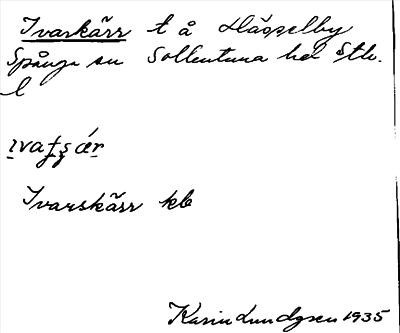 Ivarskärr t å Hässelby
Spånga sn Sollentuna hd Sthlm.
l
Ivarskärr kb
Karin Lundgren 1935